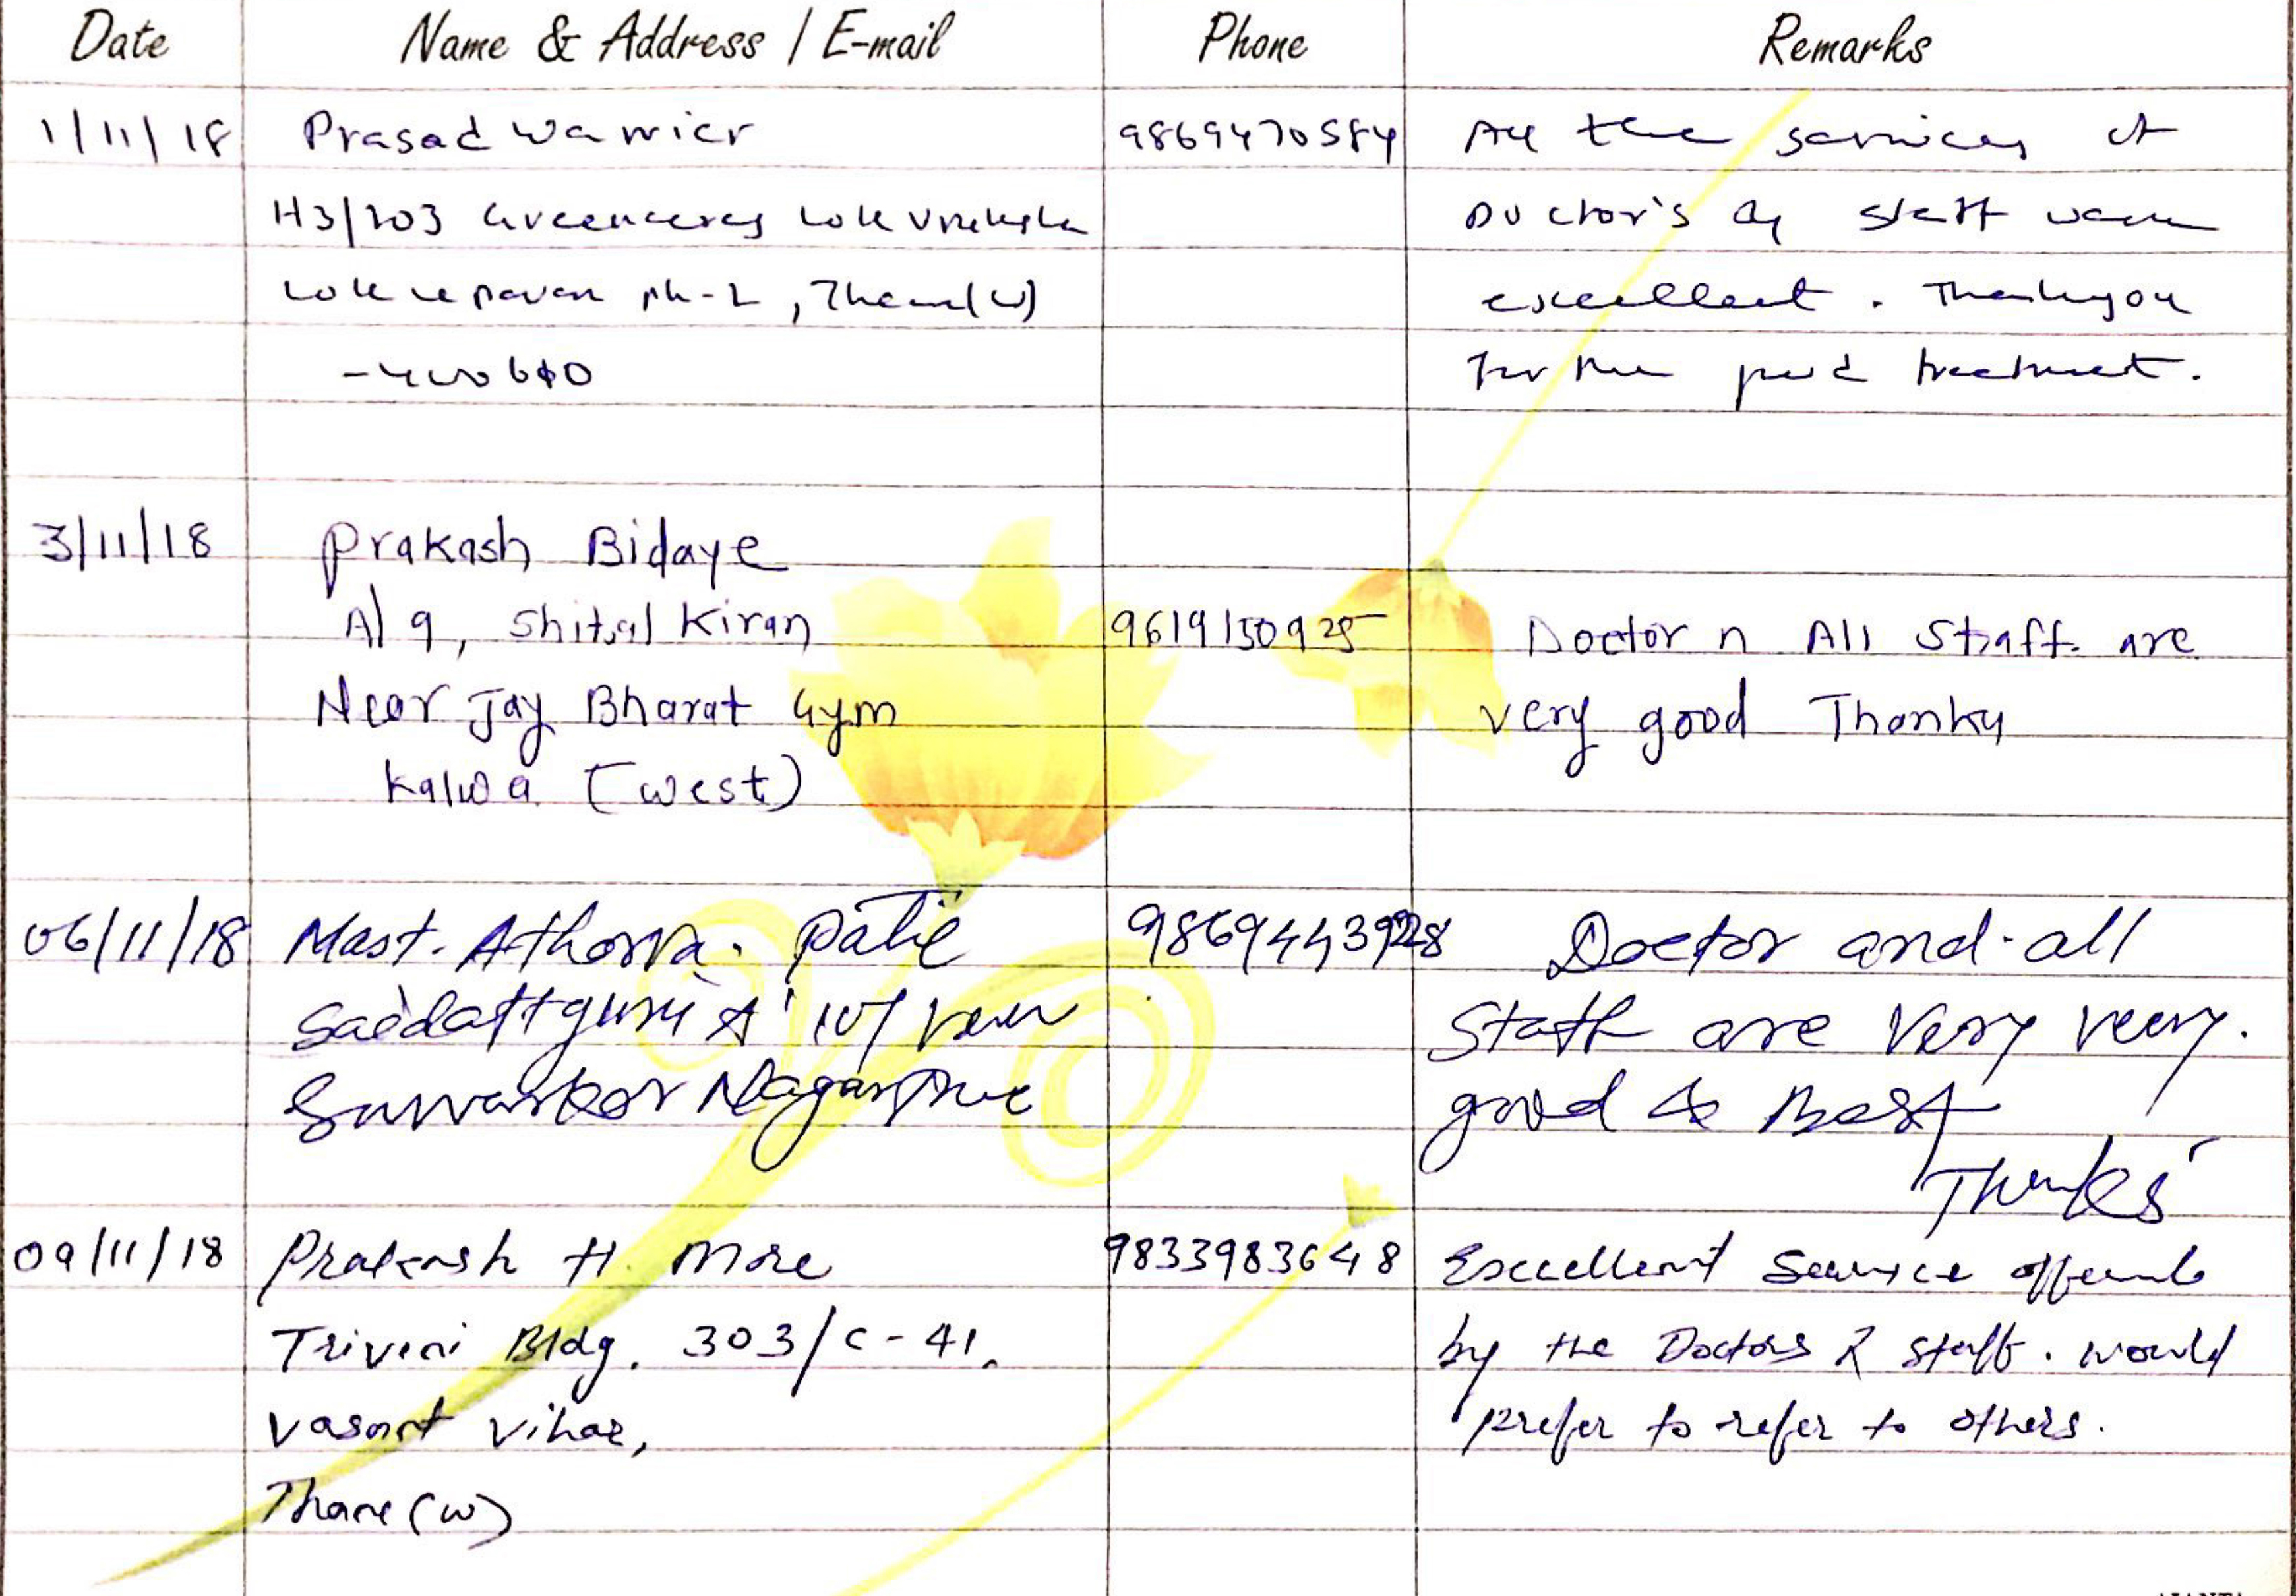 Date Name & Address / E-mail Phone Remarks
1/11/18 Prasad Warrier 9869470584 All the services of
H3/203 Greenacres Lok Vruksha Doctor's & staff were
Lok upavan ph-2, Thane(W) excellent. Thankyou
-400610 for the good treatment.
3/11/18 Prakash Bidaye
A/9, Shital Kiran 9619150925 Doctor n All Staff are
Near Jay Bharat Gym very good Thanku
Kalwa (West)
06/11/18 Mast. Atharva. Patil Doctor and all
Saidattguru A Staff are Very very.
Nagar good & Best
Thanks
09/11/18 Prakash H. More 9833983648 Excellent Service offered
Triveni Bldg. 303/C-41. by the Doctors & staff. would
Vasant Vihar, prefer to refer to others.
Thane (W)